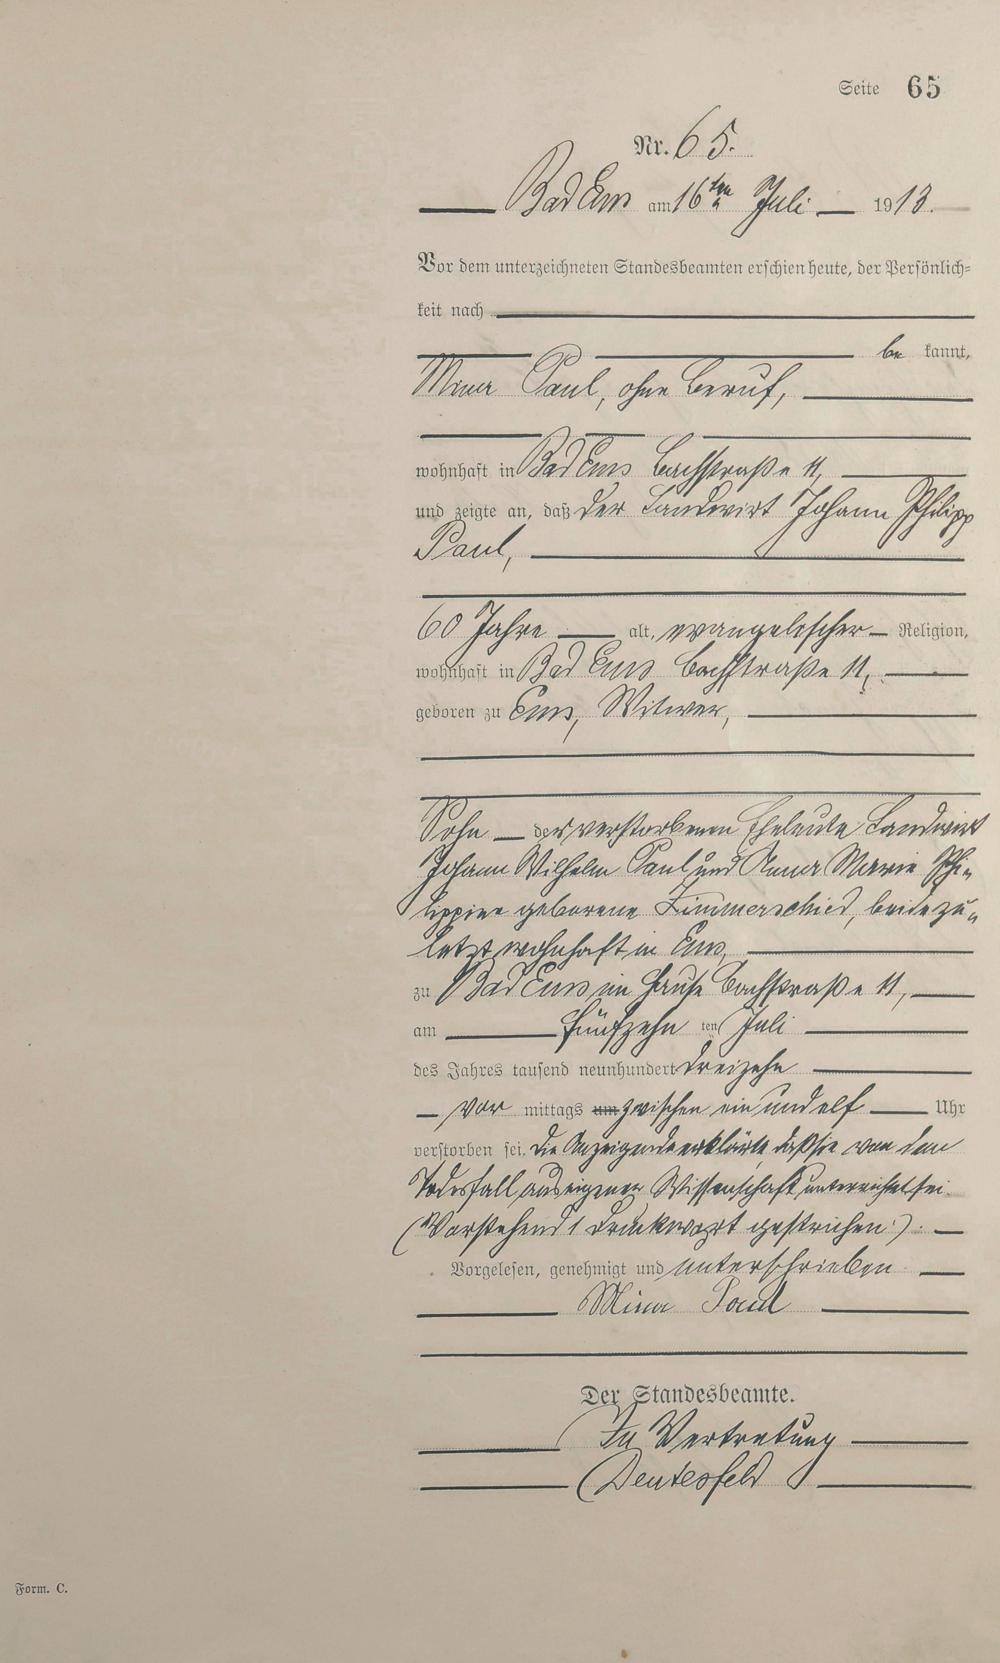 Seite 65
Nr. 65.
Bad Ems am 16ten Juli 1913.
Vor dem unterzeichneten Standesbeamten erschien heute, der Persönlich=
keit nach
be kannt,
Mina Paul, ohne Beruf,
wohnhaft in Bad Ems Bachstraße 11,
und zeigte an, daß der Landwirt Johann Philipp
Paul,
60 Jahre alt, evangelischer Religion,
wohnhaft in Bad Ems Bachstraße 11,
geboren zu Ems, Witwer,
Sohn der verstorbenen Eheleute Landwirt
Johann Wilhelm Paul und Anna Marie Phi-
lippine geborene Zimmerschied, beide zu-
letzt wohnhaft in Ems,
zu Bad Ems im Hause Bachstraße 11,
am fünfzehn ten Juli
des Jahres tausend neunhundert dreizehn
vor mittags um zwischen ein und elf Uhr
verstorben sei. Die Anzeigende erklärte, daß sie von dem
Todesfall aus eigener Wissenschaft unterrichtet sei.
(Vorstehend 1 Druckwort gestrichen).
Vorgelesen, genehmigt und unterschrieben
Mina Paul
Der Standesbeamte.
In Vertretung
Deutesfeld
Form. C.